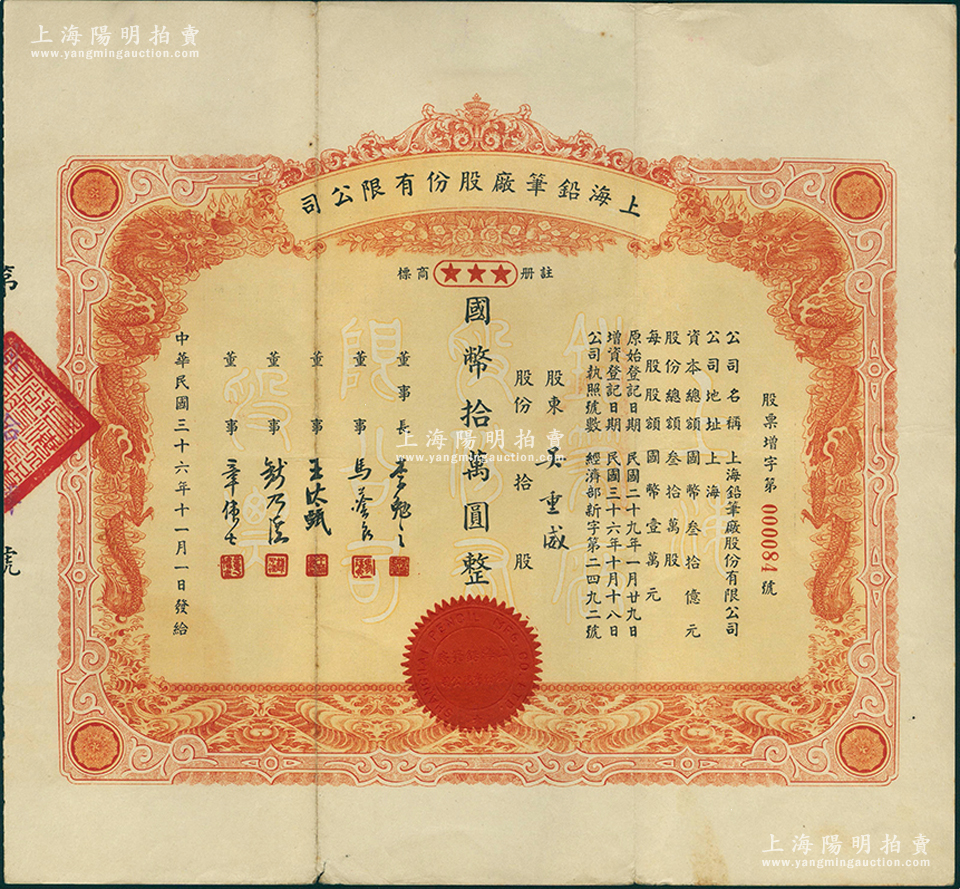 上海陽明拍賣
www.yangmingauction.com
上海鉛筆廠股份有限公司
註册 商標
股票增字第000084號
公司名稱 上海鉛筆廠股份有限公司
公司地址 上海
資本總額 國幣叁拾億元
股份總額 叁拾萬股
每股股額 國幣壹萬元
原始登記日期 民國二十九年一月廿九日
增資登記日期 民國三十六年十月十八日
公司執照號數 經濟部新字第二四九二號
股東 吳重威
股份 拾 股
國幣拾萬圓整
董事長
董事 馬
董事 王
董事 錢乃澂
董事 章偉士
中華民國三十六年十一月一日發給
第
號
上海陽明拍賣
www.yangmingauction.com
上海陽明拍賣
www.yangmingauction.com